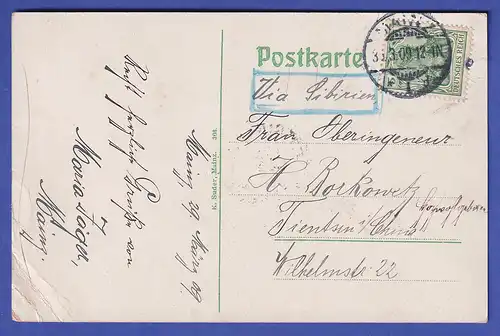 Postkarte
MAINZ
09.12-1N
DEUTSCHES REICH
Via Sibirien
Frau Oberingeneur
H. Borkowetz
Tientsin i/China
Wilhelmstr. 22
Mainz, 29. März 09
Recht herzliche Grüße von
Maria Jäger,
Mainz.
K. Suder, Mainz. 308